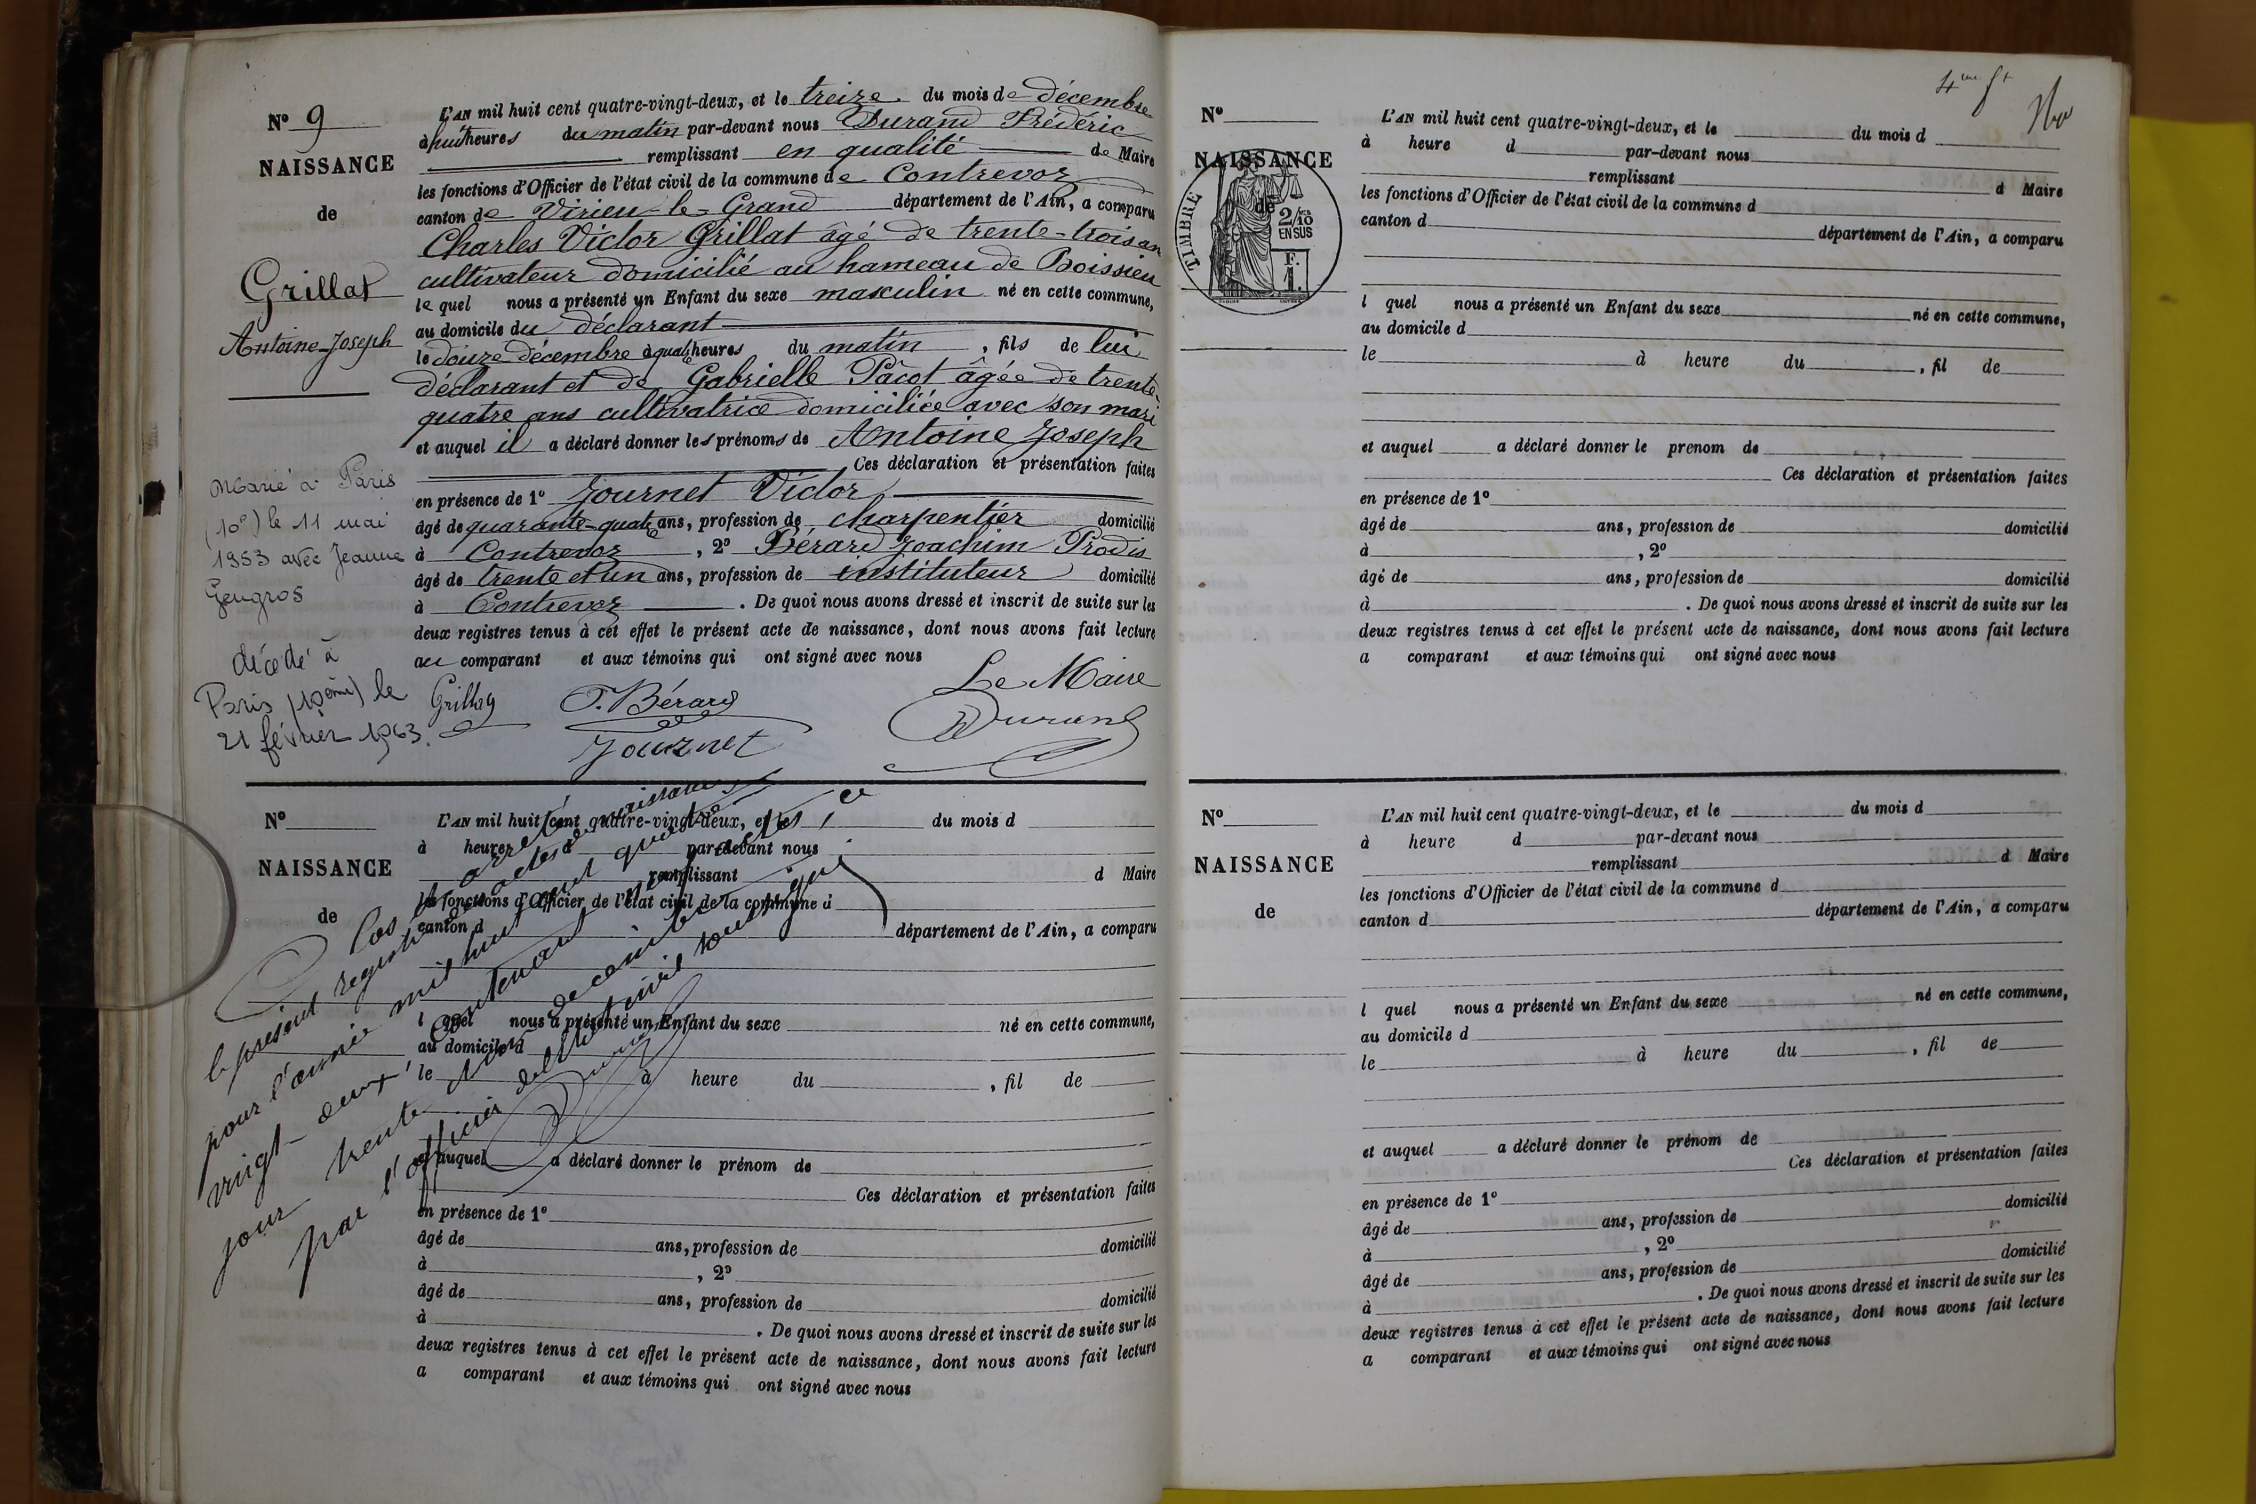 N° 9
NAISSANCE
de
Grillat
Antoine-Joseph
L'AN mil huit cent quatre-vingt-deux, et le treize du mois de décembre
à huit heures du matin par-devant nous Durand Frédéric
remplissant en qualité de Maire
les fonctions d'Officier de l'état civil de la commune de Contrevoz
canton de Virieu-le-Grand département de l'Ain, a comparu
Charles Victor Grillat âgé de trente-trois ans
cultivateur domicilié au hameau de Boissieu
lequel nous a présenté un Enfant du sexe masculin né en cette commune,
au domicile du déclarant
le douze décembre à quatre heures du matin, fils de lui
déclarant et de Gabrielle Pâcot âgée de trente-
quatre ans cultivatrice domiciliée avec son mari
et auquel il a déclaré donner les prénoms de Antoine Joseph
Ces déclaration et présentation faites
en présence de 1° Journet Victor
âgé de quarante-quatre ans, profession de charpentier domicilié
à Contrevoz, 2° Bérard Joachim Prodis
âgé de trente et un ans, profession de instituteur domicilié
à Contrevoz. De quoi nous avons dressé et inscrit de suite sur les
deux registres tenus à cet effet le présent acte de naissance, dont nous avons fait lecture
au comparant et aux témoins qui ont signé avec nous
Grillat J. Bérard Le Maire
Journet Durand
Marié à Paris
(10e) le 11 mai
1953 avec Jeanne
Gengros
décédé à
Paris (10ème) le
21 février 1963.
N°
NAISSANCE
de
L'AN mil huit cent quatre-vingt-deux, et le du mois d
à heures d par-devant nous
remplissant d Maire
les fonctions d'Officier de l'état civil de la commune d
canton d département de l'Ain, a comparu
l quel nous a présenté un Enfant du sexe né en cette commune,
au domicile d
le à heure du , fil de
et auquel a déclaré donner le prénom de
Ces déclaration et présentation faites
en présence de 1°
âgé de ans, profession de domicilié
à , 2°
âgé de ans, profession de domicilié
à . De quoi nous avons dressé et inscrit de suite sur les
deux registres tenus à cet effet le présent acte de naissance, dont nous avons fait lecture
a comparant et aux témoins qui ont signé avec nous
Clos et arrêté
le présent registre des actes de naissances
pour l'année mil huit cent quatre
vingt-deux, contenant neuf actes, ce
jour trente et un décembre
par l'officier de l'état civil soussigné
Durand
4me ft
N°
NAISSANCE
de
TIMBRE
2/10
EN SUS
F.
1.
L'AN mil huit cent quatre-vingt-deux, et le du mois d
à heure d par-devant nous
remplissant d Maire
les fonctions d'Officier de l'état civil de la commune d
canton d département de l'Ain, a comparu
l quel nous a présenté un Enfant du sexe né en cette commune,
au domicile d
le à heure du , fil de
et auquel a déclaré donner le prenom de
Ces déclaration et présentation faites
en présence de 1°
âgé de ans, profession de domicilié
à , 2°
âgé de ans, profession de domicilié
à . De quoi nous avons dressé et inscrit de suite sur les
deux registres tenus à cet effet le présent acte de naissance, dont nous avons fait lecture
a comparant et aux témoins qui ont signé avec nous
N°
NAISSANCE
de
L'AN mil huit cent quatre-vingt-deux, et le du mois d
à heure d par-devant nous
remplissant d Maire
les fonctions d'Officier de l'état civil de la commune d
canton d département de l'Ain, a comparu
l quel nous a présenté un Enfant du sexe né en cette commune,
au domicile d
le à heure du , fil de
et auquel a déclaré donner le prénom de
Ces déclaration et présentation faites
en présence de 1°
âgé de ans, profession de domicilié
à , 2°
âgé de ans, profession de domicilié
à . De quoi nous avons dressé et inscrit de suite sur les
deux registres tenus à cet effet le présent acte de naissance, dont nous avons fait lecture
a comparant et aux témoins qui ont signé avec nous